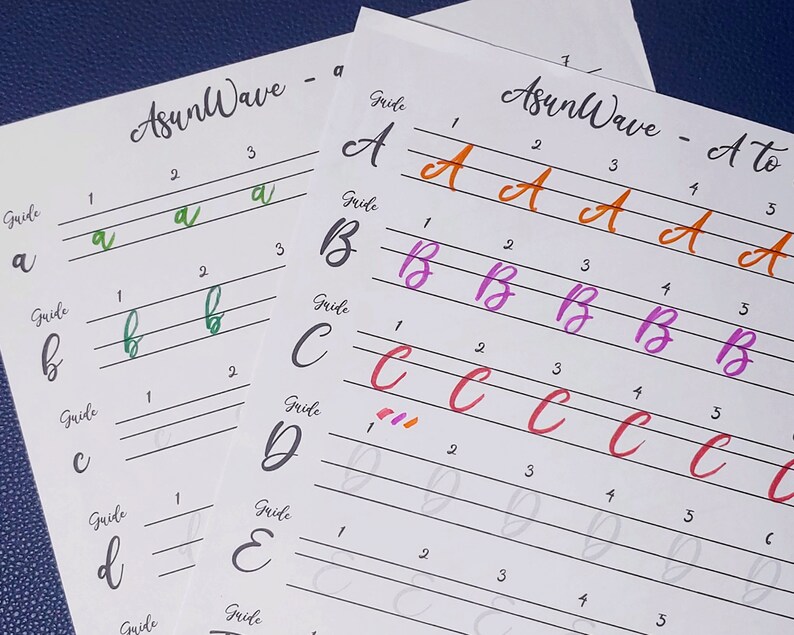 AsunWave - a
Guide 1 2 3
a a a a
Guide 1 2 3
b b b
Guide 1 2
c c
Guide 1
d d
Guide
7
AsunWave - A to
Guide 1 2 3 4 5
A A A A A A
Guide 1 2 3 4 5
B B B B B B
Guide 1 2 3 4 5
C C C C C C C
Guide 1 2 3 4 5 6
D D D D D D D
Guide 1 2 3 4 5
E E E E E
Guide